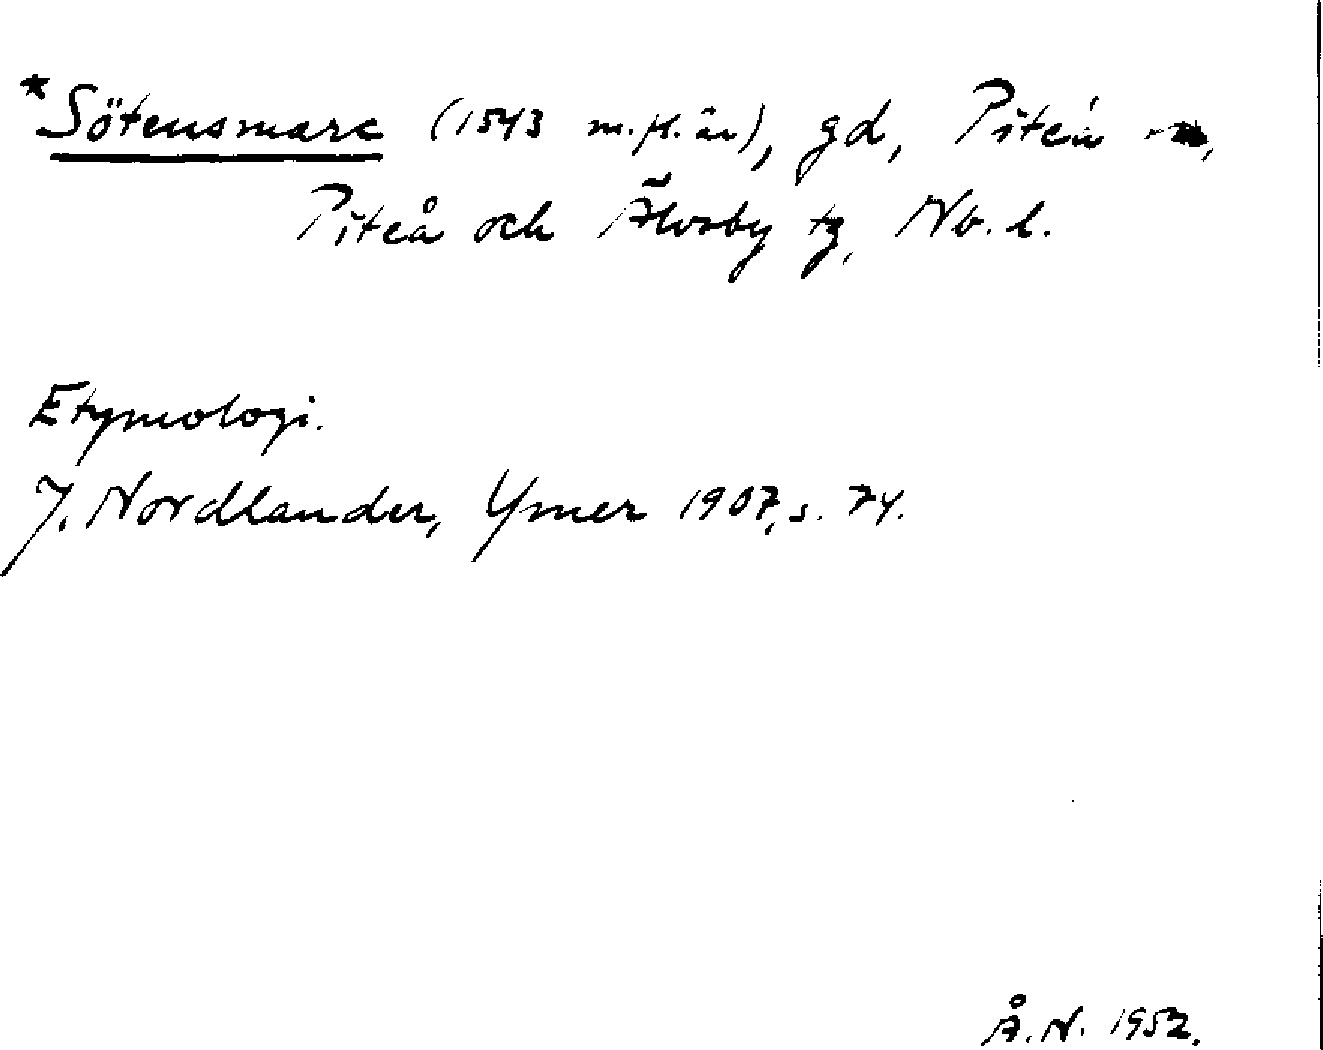 *Sötensmarc (1543 m.fl. år), gd, Piteå
Piteå och Älvsby tg, Nb. l.
Etymologi.
J. Nordlander, Ymer 1907, s. 74.
Å. N. 1952.